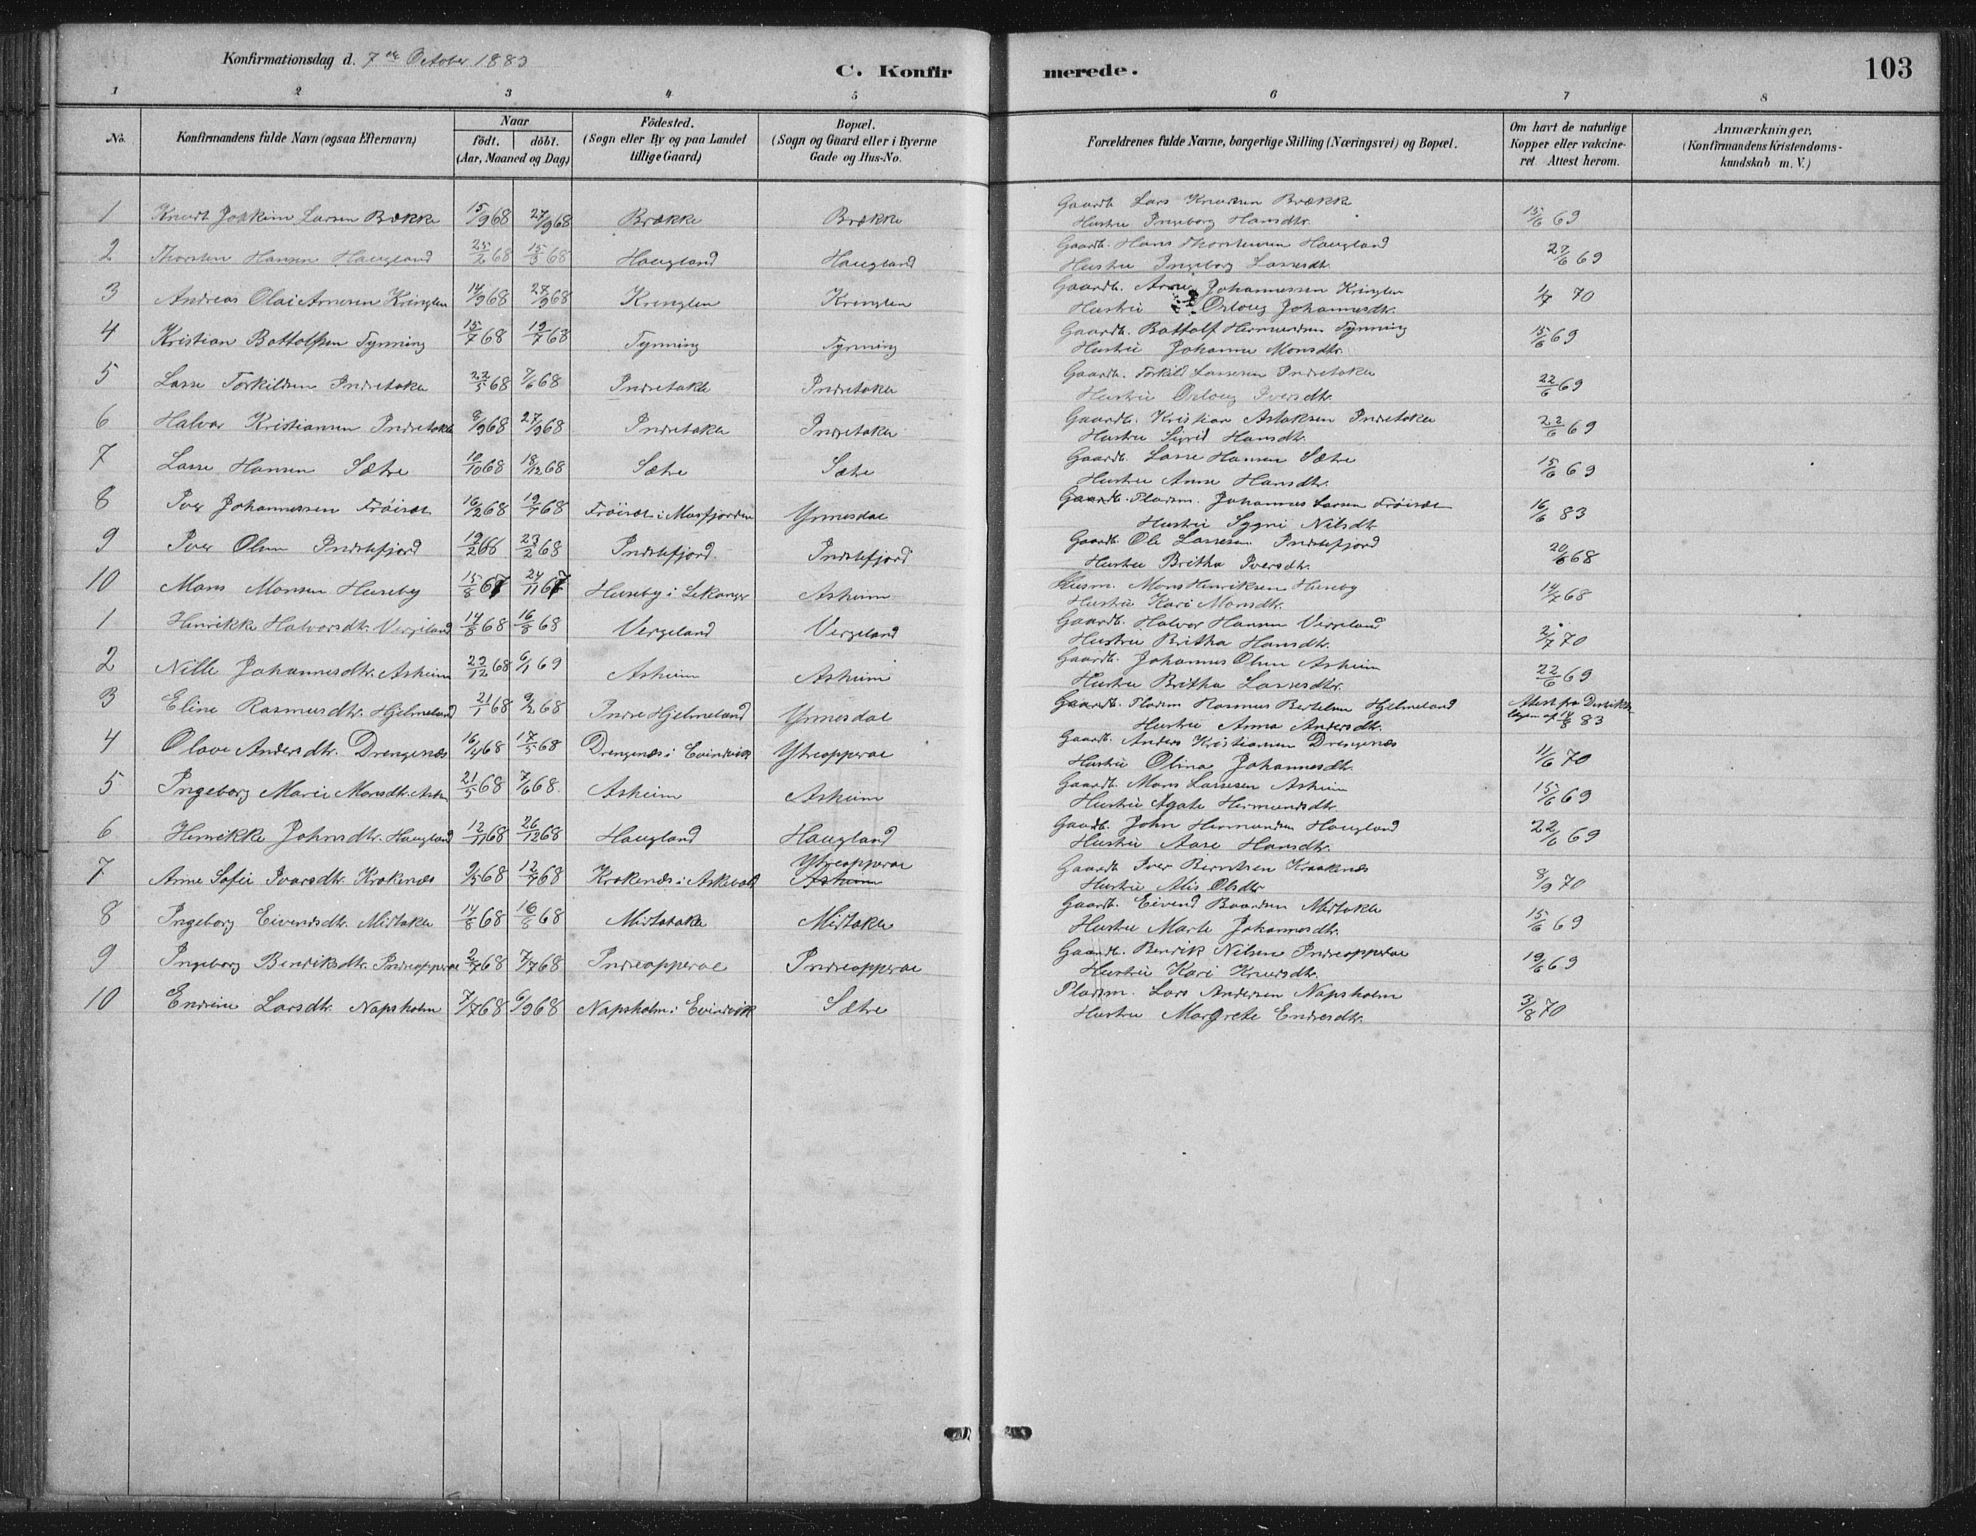 Konfirmationsdag d. 7de October 1883
C. Konfirmerede.
103
1 2 3 4 5 6 7 8
No.
Konfirmandens fulde Navn (ogsaa Efternavn)
Naar
födt. döbt.
(Aar, Maaned og Dag)
Födested.
(Sogn eller By og paa Landet
tillige Gaard)
Bopæl.
(Sogn og Gaard eller i Byerne
Gade og Hus-No.
Forældrenes fulde Navne, borgerlige Stilling (Næringsvei) og Bopæl.
Om havt de naturlige
Kopper eller vakcine-
ret. Attest herom.
Anmærkninger.
(Konfirmandens Kristendoms-
kundskab m. V.)
1 Knudt Joakim Larsen Brække 15/9 68 27/9 68 Brække Brække Gaardb. Lars Knudsen Brække 15/6 69
Hustru Ingeborg Hansdtr.
2 Thorsten Hansen Haugland 25/2 68 15/3 68 Haugland Haugland Gaardb. Hans Thorstensen Haugland 27/6 69
Hustru Ingeborg Lassesdtr.
3 Andreas Olai Arnesen Kringlen 14/9 68 27/9 68 Kringlen Kringlen Gaardb. Arne Johannessen Kringlen 1/7 70
Hustru Orloug Johannesdtr.
4 Kristian Bottolfsen Tynning 15/7 68 19/7 68 Tynning Tynning Gaardb. Bottolf Hermundsen Tynning 15/6 69
Hustru Johanne Monsdtr.
5 Lasse Torkildsen Indretakle 22/5 68 7/6 68 Indretakle Indretakle Gaardb. Torkild Lassesen Indretakle 22/6 69
Hustru Orloug Iversdtr.
6 Halvor Kristiansen Indretakle 8/9 68 27/9 68 Indretakle Indretakle Gaardb. Kristian Aslaksen Indretakle 22/6 69
Hustru Sigrid Hansdtr.
7 Lasse Hansen Sætre 10/10 68 18/12 68 Sætre Sætre Gaardb. Lasse Hansen Sætre 15/6 69
Hustru Anne Hansdtr.
8 Iver Johannessen Fröiset 16/2 68 19/7 68 Fröiset i Masfjorden Yrmesdal Gaardb. Pladsm. Johannes Larsen Fröiset 16/6 83
Hustru Sygni Nilsdtr.
9 Iver Olsen Indrefjord 19/2 68 23/2 68 Indrefjord Indrefjord Gaardb. Ole Lassesen Indrefjord 20/6 68
Hustru Britha Iversdtr.
10 Mons Monsen Huseby 15/8 67 24/11 67 Huseby i Lekanger Asheim Husm. Mons Henriksen Huseby 14/7 68
Hustru Kari Monsdtr.
1 Henrikke Halvorsdtr. Vergeland 14/8 68 16/8 68 Vergeland Vergeland Gaardb. Halvor Hansen Vergeland 2/7 70
Hustru Britha Hansdtr.
2 Nille Johannesdtr. Asheim 23/12 68 6/1 69 Asheim Asheim Gaardb. Johannes Olsen Asheim 22/6 69
Hustru Britha Lassesdtr.
3 Eline Rasmusdtr. Hjelmeland 21/1 68 9/2 68 Indre Hjelmeland Yrmesdal Gaardb. Pladsm Rasmus Bertelsen Hjelmeland Attest fra Distrikts-
Hustru Anna Andersdtr. lægen af 14/8 83
4 Olave Andersdtr. Drengenæs 16/4 68 17/5 68 Drengenæs i Evindvik Ytreopperae Gaardb. Anders Kristiansen Drengenæs 11/6 70
Hustru Olina Johannesdtr.
5 Ingeborg Marie Monsdtr. Ashm 21/5 68 7/6 68 Asheim Asheim Gaardb. Mons Lassesen Asheim 15/6 69
Hustru Agate Hermundsdtr.
6 Henrikke Johnsdtr. Haugland 12/11 68 26/12 68 Haugland Haugland Gaardb. John Hermundsen Haugland 22/6 69
Hustru Aase Hansdtr.
7 Anne Sofie Ivarsdtr. Krokenæs 9/5 68 12/7 68 Krokenæs i Askevold Ytreopperae Asheim Gaardb Iver Berntsen Kraakenæs 8/9 70
Hustru Alis Olsdtr
8 Ingeborg Eivendsdtr. Midtakle 14/8 68 16/8 68 Midtatakle Midtakle Gaardb. Eivend Baardsen Midtakle 15/6 69
Hustru Marte Johannesdtr.
9 Ingeborg Bendiksdtr. Indreopperae 2/7 68 7/7 68 Indreopperae Indreopperae Gaardb. Bendik Nilsen Indreopperae 19/6 69
Hustru Kari Knudsdtr.
10 Endrine Larsdtr. Napsholm 7/7 68 6/9 68 Napsholm i Evindvik Sætre Pladsm. Lars Andersen Napsholm 3/8 70
Hustru Margrete Endresdtr.